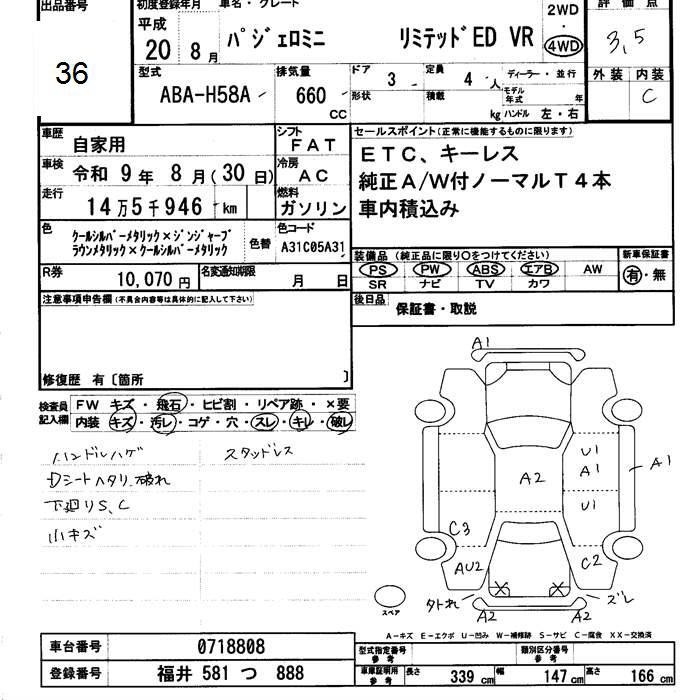 出品番号
36
初度登録年月
車名・グレード
平成
20 8 月
パジェロミニ リミテッドED VR
2WD
・
4WD
評価点
3,5
型式
ABA-H58A
排気量
660
CC
ドア
3
形状
定員
4 人
積載
kg
ディーラー・並行
モデル年式 年
ハンドル 左・右
外装 内装
C
車歴
自家用
シフト
FAT
車検
令和 9 年 8 月(30 日)
冷房
AC
走行
14万5千946 km
燃料
ガソリン
色
クールシルバーメタリック×ジンジャーブ
ラウンメタリック×クールシルバーメタリック
色替
色コード
A31C05A31
R券
10,070 円
名変通知期限
月 日
セールスポイント(正常に機能するものに限ります)
ETC、キーレス
純正A/W付ノーマルT4本
車内積込み
装備品 (純正品に限り○をつけてください)
PS PW ABS エアB AW
SR ナビ TV カワ
新車保証書
有・無
後日品
保証書・取説
注意事項申告欄(不具合内容等は具体的に記入して下さい)
修復歴 有〔箇所 〕
検査員
記入欄
FW キズ・飛石・ヒビ割・リペア跡・×要
内装 キズ・汚レ・コゲ・穴・スレ・キレ・破レ
ハンドルハゲ
スタッドレス
Dシートヘタリ.破れ
下廻りS、C
小キズ
A1
U1
A1
A1
A2
U1
C3
AU2
C2
外れ
ズレ
A2
A2
スペア
A-キズ E-エクボ U-凹み W-補修跡 S-サビ C-腐食 XX-交換済
車台番号
0718808
登録番号
福井 581 つ 888
型式指定番号
参考
類別区分番号
参考
車庫証明用
参考
長さ
339 cm
幅
147 cm
高さ
166 cm